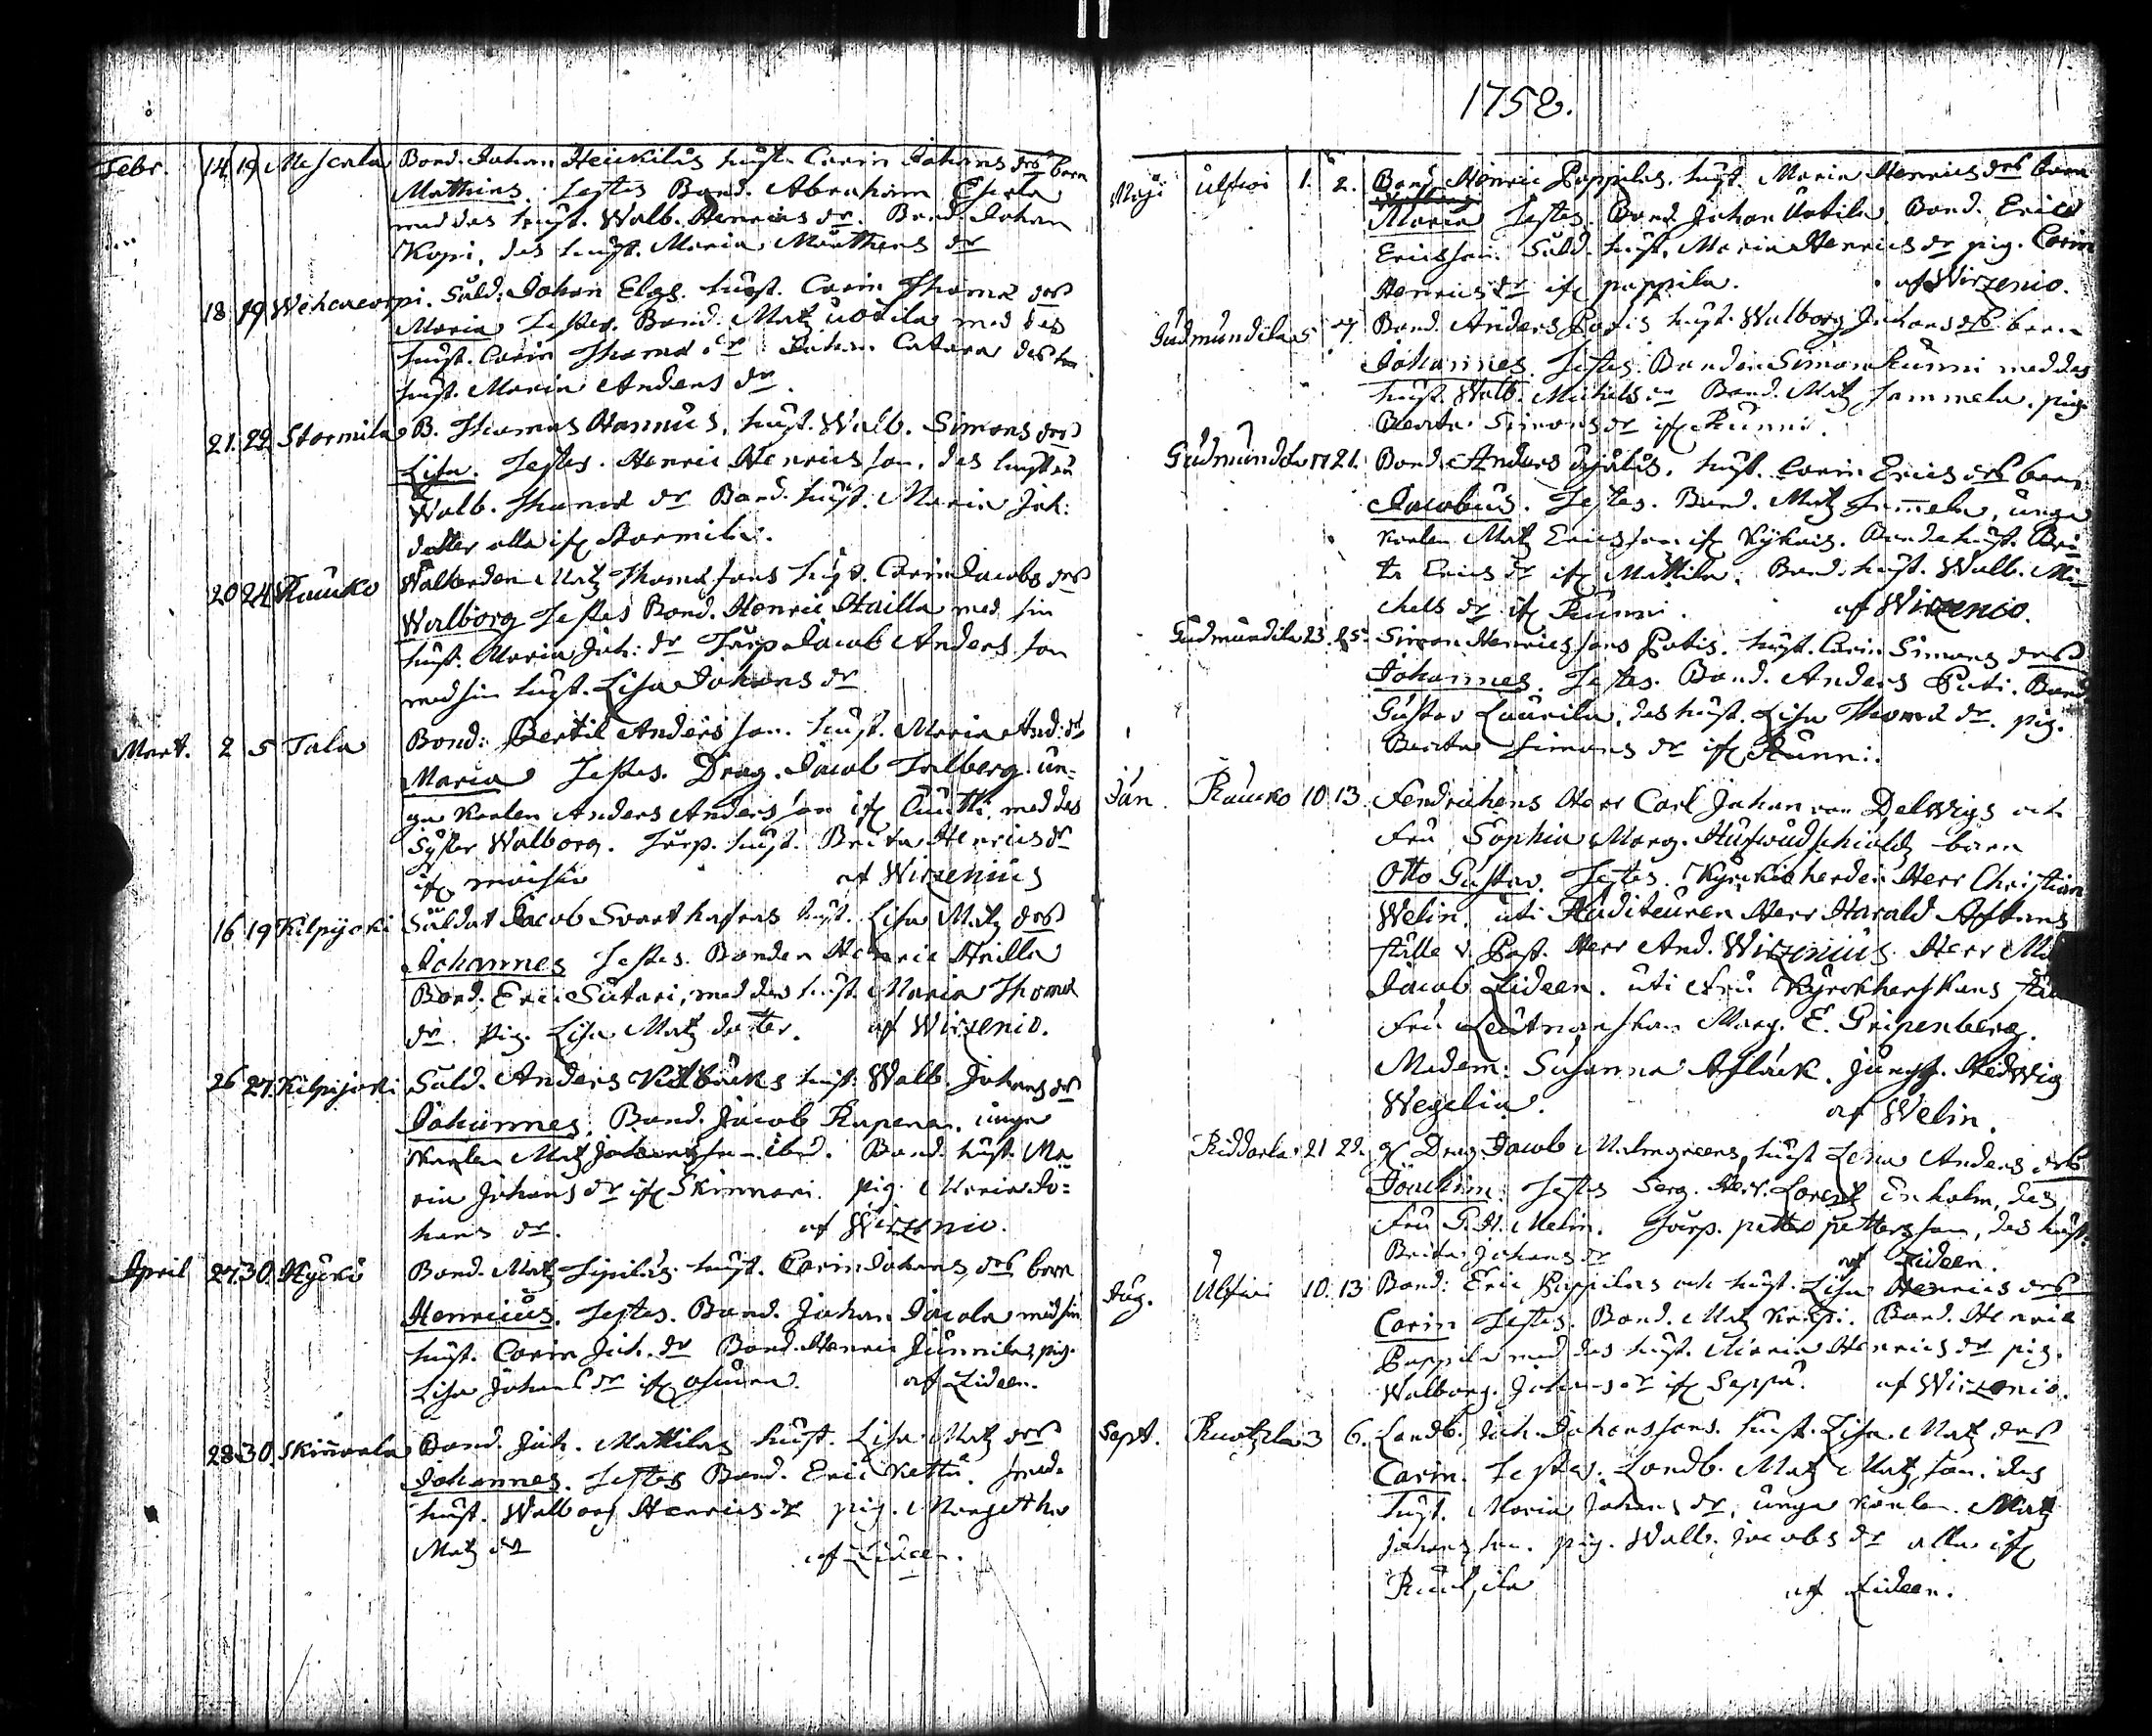 Febr. 14 19 Mescala Bond. Johan Heickilas hust. Carin Johans drs barn
Mathias. Testes Bond. Abraham
med des hust. Walb. Henrics dr. Bond. Johan
Kopi, des hust. Maria Matthens dr
18 19 Wehcacorpi. Sald. Johan Elgs. hust. Carin Thomæ drs
Maria Testes. Bond. Matz Uotila med des
hust. Carin Thomæ dr Johan Catara des
hust. Maria Anders dr.
21. 22 Stormila B. Thomas Hannus. hust. Walb. Simons drs
Lisa. Testes. Henric Henrics son. des hustru
Walb. Thomæ dr Bond. hust. Maria Joh:
dotter alla ifr Stormila.
20 24 Raucko Matz Thomæ sons hust. Carin Jacobs drs
Walborg Testes Bond. Henric Hailla med sin
hust. Maria Joh: dr Torp. Jacob Anders son
med sin hust. Lisa Johans dr
Mart. 2 5 Tala Bond: Bertil Anders son. hust. Maria And: dr
Maria Testes. Drag. Jacob Talberg. un=
ga Karlen Anders Anders son ifr med des
Syster Walborg. Torp. hust. Brita Henrics dr
ifr moisio af Wirzenius
16 19 Kilpijoki Saldat Jacob Svart hafras hust. Lisa Matz drs
Johannes Testes. Bonden Henric Hailla
Bond. Eric Sutari, med des hust. Maria Thomæ
dr. Pig. Lisa Matz dotter. af Wirzenio.
26 27. Kilpijoki Sald. Anders hust. Walb. Johans drs
Johannes. Bond. Jacob Rapena. unga
Karlen Matz Johans son. ibid. Bond. hust. Ma
ria Johans dr ifr Skinnari. pig. Maria Jo=
hans dr. af Wirzenio.
April 27 30. Hyckö Bond. Matz Sipilas hust. Carin Johans drs barn
Henricus. Testes. Bond. Johan Jacola med sin
hust. Carin Joh. dr Bond. Henric Junnila, pig.
Lisa Johans dr ifr af Lideen.
28 30. Skinnarla Bond. Joh. Mattilas hust. Lisa Matz drs
Johannes. Testes Bond. Eric Kettu.
hust. Walborg Henrics dr pig. Margetha
Matz dr af Lideen.
1758.
Maji Ulfwi 1. 2. Bond. Henric Pappilas. hust. Maria Henrics drs barn
Maria Testes. Bond. Johan Uotila. Bond. Eric
Ericsson. Sald. hust. Maria Henrics dr pig. Carin
Henrics dr ifr pappila. af Wirzenio.
Gudmundila 5 7. Bond. Anders Potis hust. Walborg Johans drs barn
Johannes. Testes. Bonden Simon Runni med des
hust. Walb. Michels dr Bond. Matz Sammela. pig.
Beata Simons dr ifr Runni.
Gudmundila 17 21. Bond. Anders hust. Carin Erics drs barn
Jacobus. Testes. Bond. Matz Sam̄ela, unga
Karlen Matz Ericsson ifr Kykais. Bonde hust. Bri
ta Erics dr ifr Mattila. Bond. hust. Walb. Mi
chels dr ifr Runni. af Wirzenio.
Gudmundila 23. 25. Simon Henrics sons Potis. hust. Carin Simons drs
Johannes. Testes. Bond. Anders Puti. Bond
Gustav Laurila, des hust. Lisa Thomæ dr. pig.
Beata Simons dr ifr Runni.
Jun. Raucko 10 13. Fendrichens Herr Carl Johan von Delwigs och
Fru Sophia Marg. Hufwudschiölds barn
Otto Gustav. Testes. Kyrckioherden Herr Christian
Welin. uti Auditeuren Herr Harald
ställe v. Past. Herr And. Wirzenius. Herr
Jacob Lideen. uti Fru Kyrckherskans
Fru Leutnanskan Marg. E. Gripenberg.
Madem: Susanna Aflæck. Jungf. Hedwig
Wegelia. af Welin.
Riddarla 21 22. Drag. Jacob Malmgreens, hust Lena Anders drs
Joachim. Testes Serg. Herr. Lorentz Enholm, des
Fru G. H. Melin. Torp. petter pettersson, des hust.
Brita Johans dr af Lideen.
Aug. Ulfwi 10. 13 Bond: Eric Pappilas och hust. Lisa Henrics drs
Carin Testes. Bond. Matz Knapi. Bond. Henric
Pappila med des hust. Maria Henrics dr pig.
Walborg. Johans dr ifr Seppä. af Wirzenio.
Sept. Ruotzila 3 6. Landb. Joh. Johanssons. hust. Lisa Matz drs
Carin. Testes. Landb. Matz Matz son. des
hust. Maria Johans dr, unga Karlen Matz
Johans son. pig. Walb. Jacobs dr alla ifr
Ruotzila af Lideen.